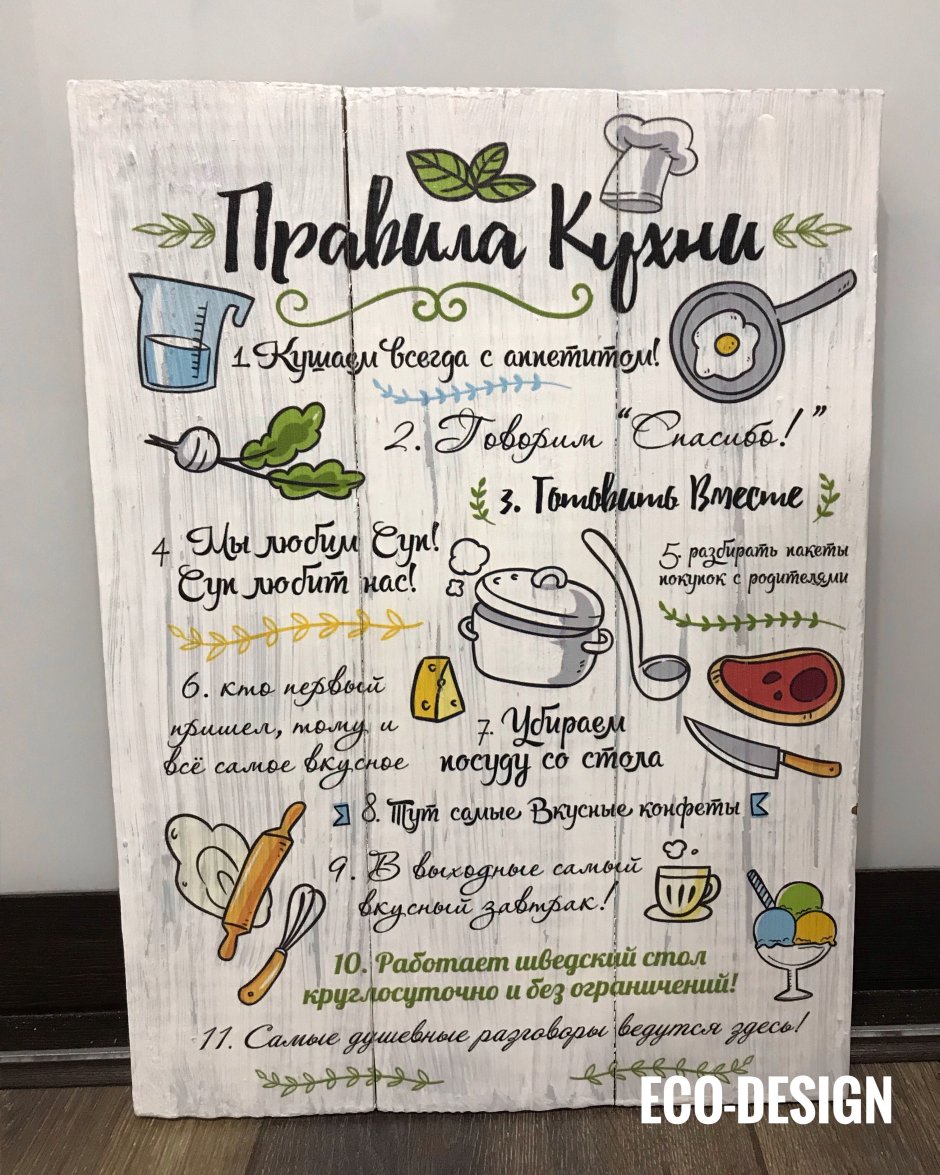 Правила Кухни
1. Кушаем всегда с аппетитом!
2. Говорим "Спасибо!"
3. Готовить Вместе
4 Мы любим Суп!
Суп любит нас!
5. разбирать пакеты
покупок с родителями
6. кто первый
пришел, тому и
всё самое вкусное
7. Убираем
посуду со стола
8. Тут самые Вкусные конфеты
9. В выходные самый
вкусный завтрак!
10. Работает шведский стол
круглосуточно и без ограничений!
11. Самые душевные разговоры ведутся здесь!
ECO-DESIGN